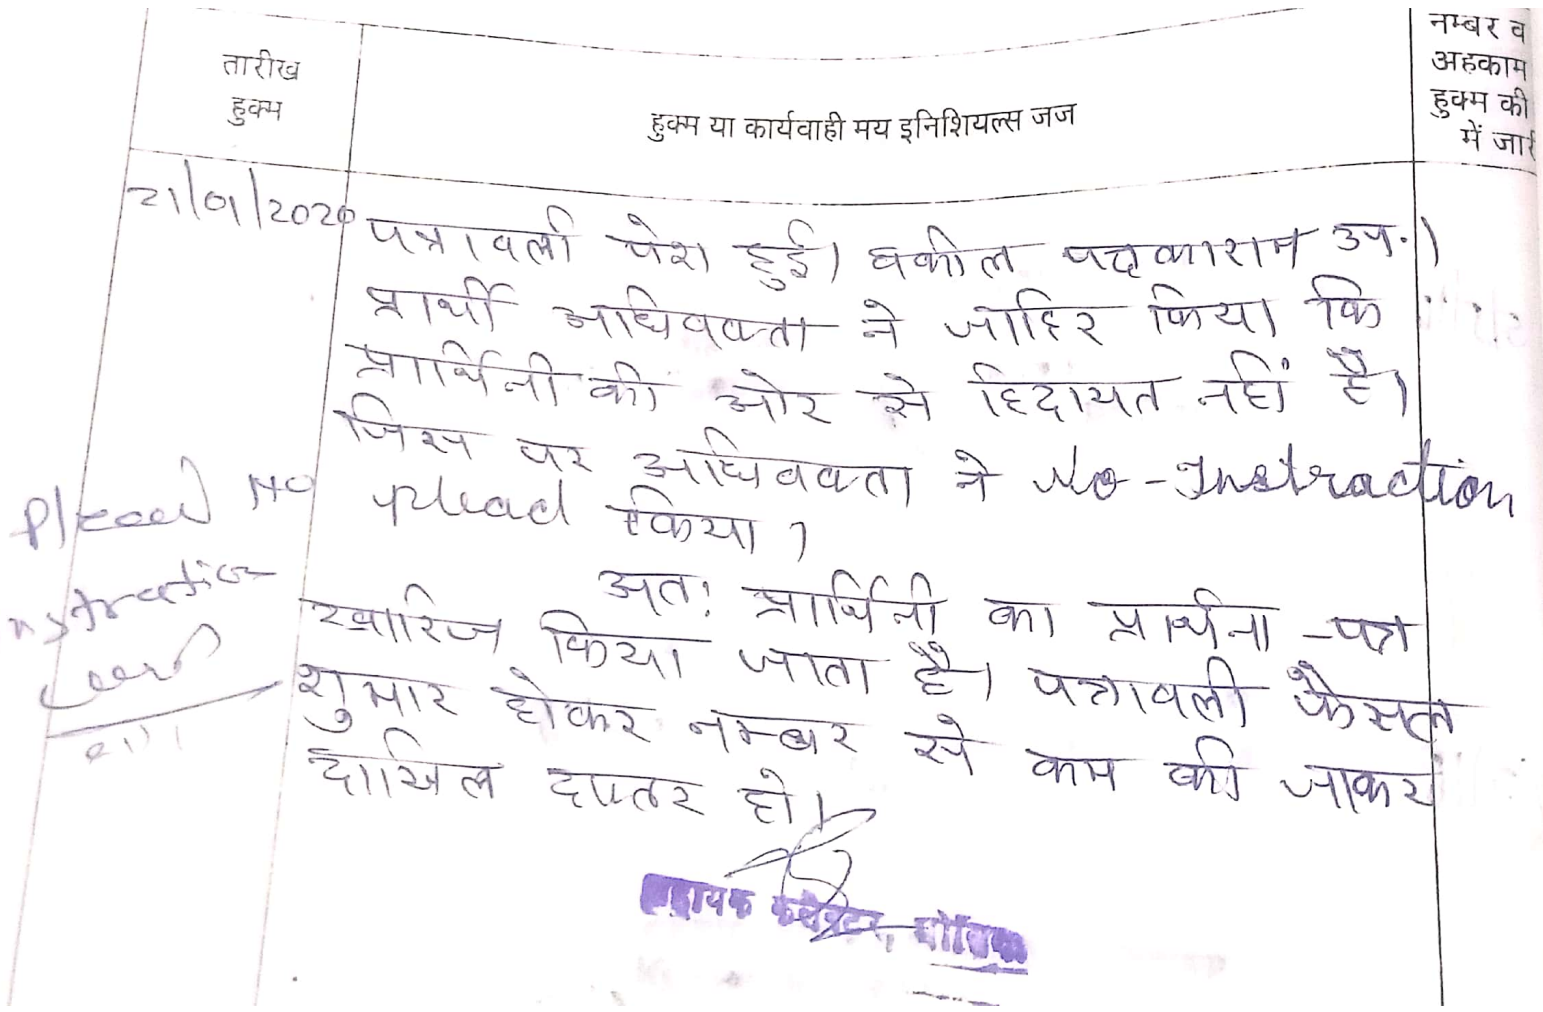 तारीख
हुक्म
हुक्म या कार्यवाही मय इनिशियल्स जज
नम्बर व
अहकाम
हुक्म की
में जारी
21/01/2020
पत्रावली पेश हुई। वकील पक्षकारान उप.।
प्रार्थी अधिवक्ता ने जाहिर किया कि
प्रार्थिनी की ओर से हिदायत नहीं है।
जिस पर अधिवक्ता ने No-Instraction
plead किया।
अतः प्रार्थिनी का प्रार्थना-पत्र
खारिज किया जाता है। पत्रावली फैसल
शुमार होकर नम्बर से कम की जाकर
दाखिल दफ्तर हो।
Plead No
nstraction
सहायक कलेक्टर,